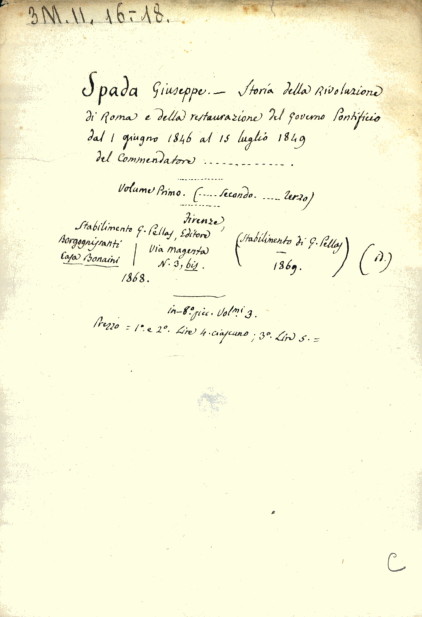 3M.11. 16-18.
Spada Giuseppe. — Storia della Rivoluzione
di Roma e della restaurazione del Governo Pontificio
dal 1 giugno 1846 al 15 luglio 1849
del Commendatore ..............
Volume Primo. (.....Secondo. ..... Terzo)
Firenze,
Stabilimento G. Pellas, Editore
Borgognissanti
Casa Bonaini
Via Magenta
N. 3, bis.
1868.
(Stabilimento di G. Pellas
—
1869.)
(id.)
in-8º. picc. Volmi. 3.
Prezzo = 1º. e 2º. Lire 4. ciascuno; 3º. Lire 5. =
C